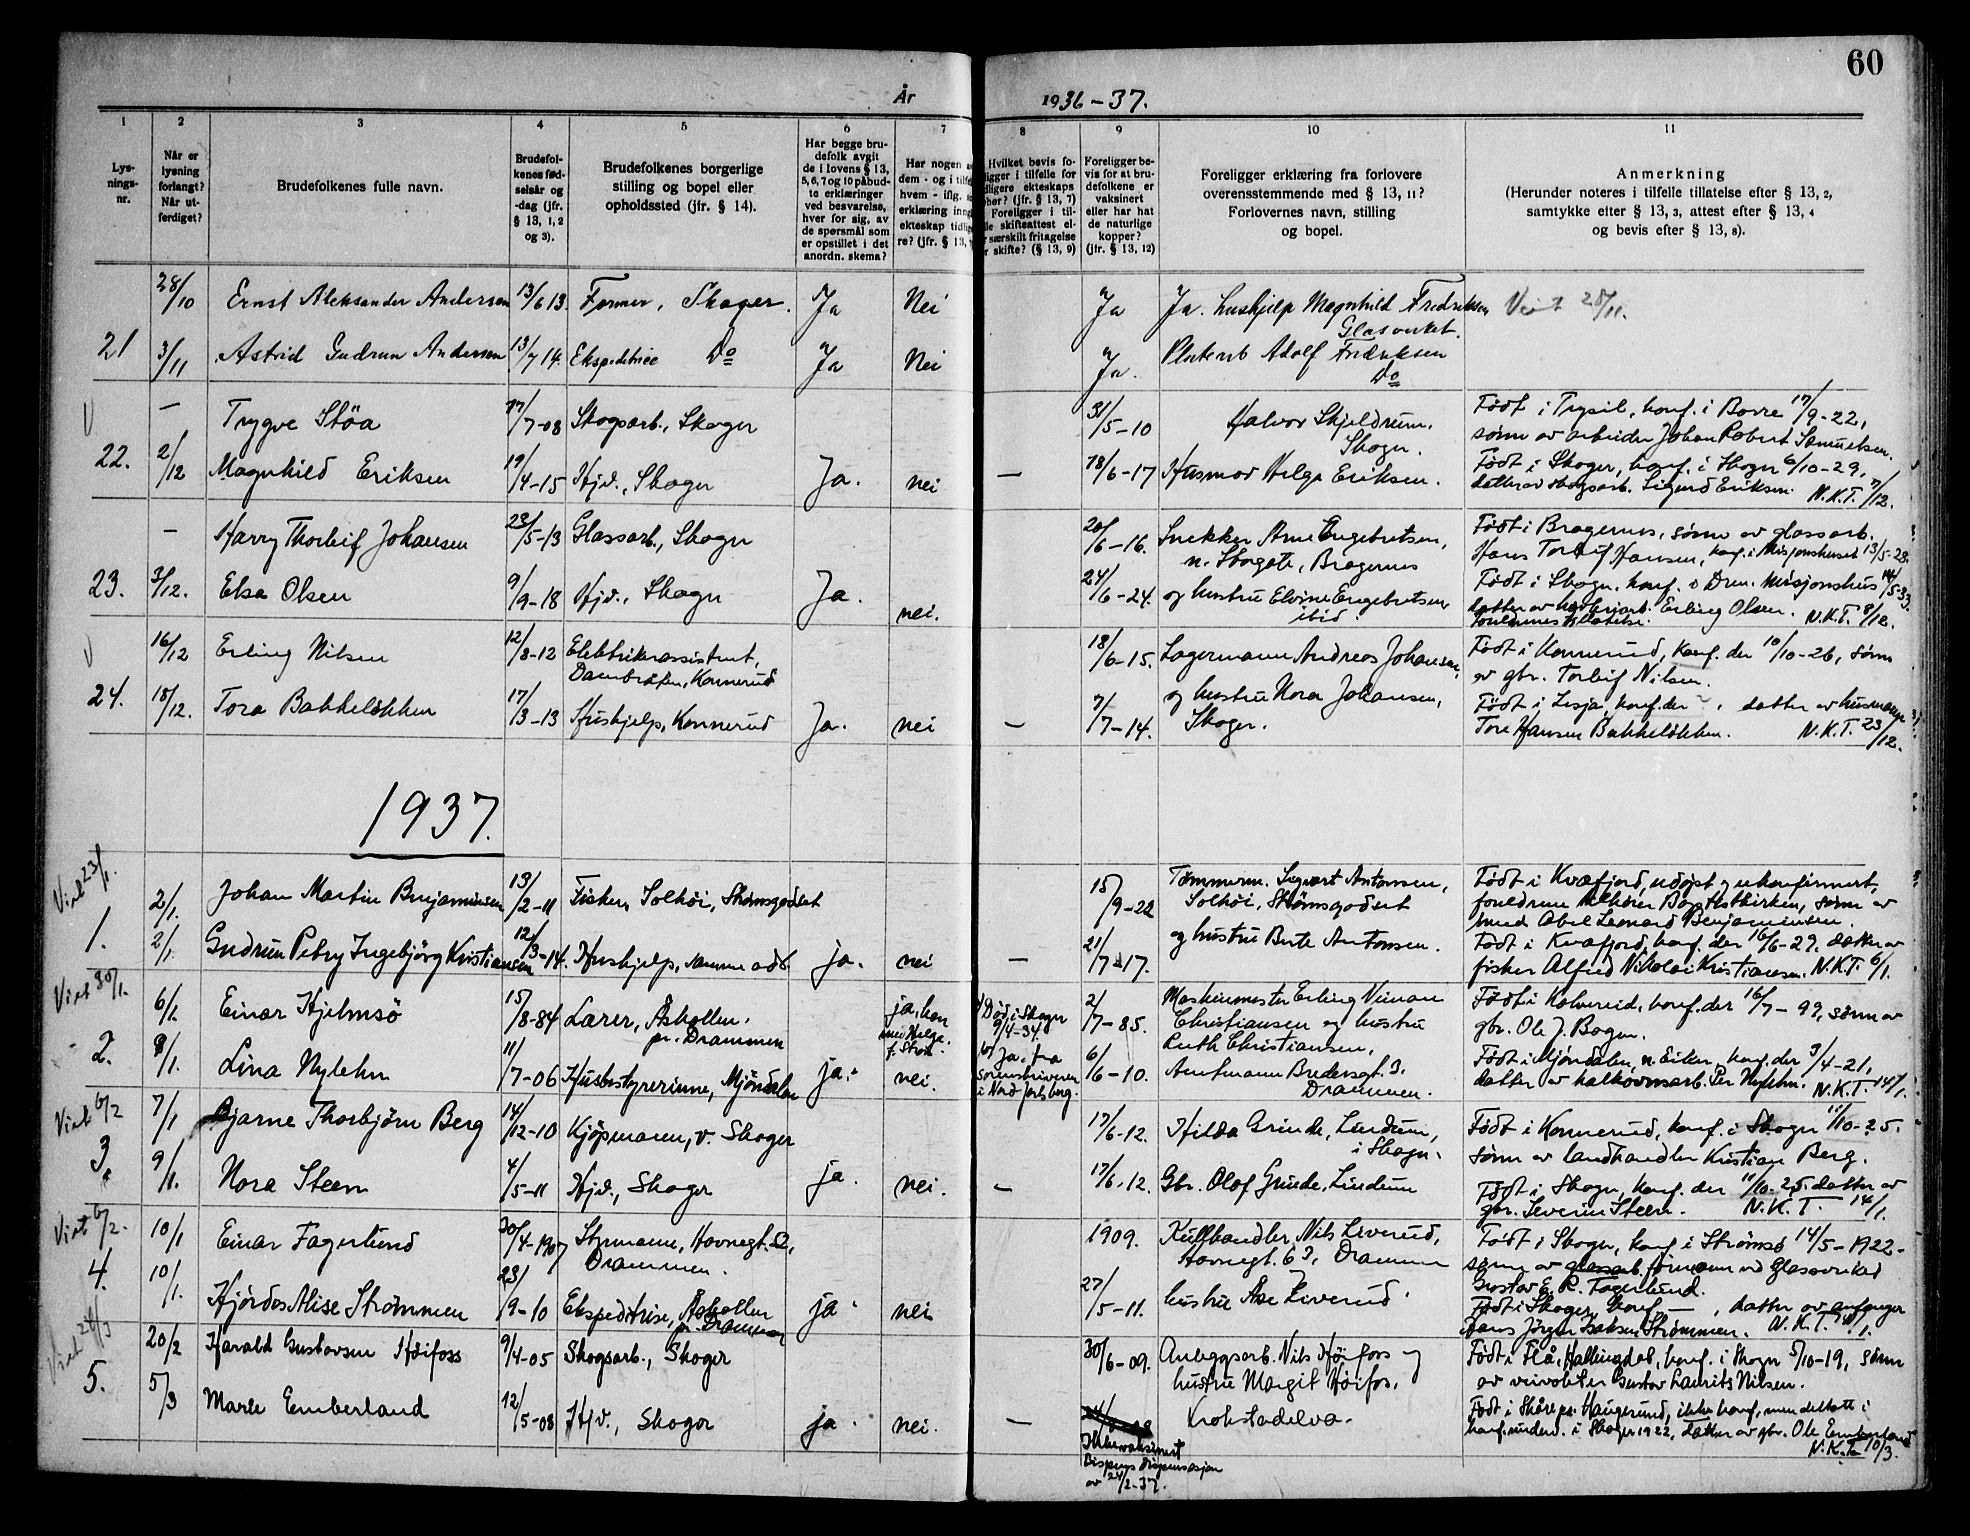 60
År 1936-37.
1 2 3 4 5 6 7 8 9 10 11
Lys-
nings-
nr.
Når er
lysning
forlangt?
Når ut-
ferdiget?
Brudefolkenes fulle navn.
Brudefol-
kenes fød-
selsår og
-dag (jfr.
§ 13, 1, 2
og 3).
Brudefolkenes borgerlige
stilling og bopel eller
opholdssted (jfr. § 14).
Har begge bru-
defolk avgit
de i lovens § 13,
5, 6, 7 og 10 påbud-
te erklæringer
ved besvarelse,
hver for sig, av
de spørsmål som
er opstillet i det
anordn. skema?
Har nogen a
dem - og i tilf
hvem - iflg.
erklæring inng
ekteskap tidlig
re? (jfr. § 13,
Hvilket bevis fo-
ligger i tilfelle for
dligere ekteskaps
hør? (jfr. § 13, 7)
Foreligger i til-
le skifteattest el-
r særskilt fritagelse
r skifte? (§ 13, 9)
Foreligger be-
vis for at bru-
defolkene er
vaksinert
eller har hat
de naturlige
kopper?
(jfr. § 13, 12)
Foreligger erklæring fra forlovere
overensstemmende med § 13, 11?
Forlovernes navn, stilling
og bopel.
Anmerkning
(Herunder noteres i tilfelle tillatelse efter § 13, 2,
samtykke efter § 13, 3, attest efter § 13, 4
og bevis efter § 13, 8).
28/10 Ernst Aleksander Andersen 13/6 13. Former, Skoger. Ja Nei Ja Ja. Hushjelp Magnhild Fredriksen Viet 28/11.
Glasverket.
21 3/11 Astrid Gudrun Andersen 13/7 14. Ekspeditrice Do Ja Nei Ja. Adolf Fredriksen
Do
— Trygve Støa 27/7-08 Skogsarb., Skoger 31/5-10 Halvor Skjeldrum, Skoger. Født i Trysil, konf. i Borre 17/9-22,
sønn av arbeider Johan Robert Samuelsen.
22. 2/12 Magnhild Eriksen 19/4-15 Hjv., Skoger Ja. nei — 18/6-17 Husmor Helga Eriksen. Født i Skoger, konf. i Skoger 6/10-29,
datter av skogsarb. Sigurd Eriksen. N.K.T. 7/12.
— Harry Thorleif Johansen 23/5-13 Glassarb., Skoger 20/6-16. Snekker Arne Engebretsen, Født i Bragernes, sønn av glassarb.
n. Storgate, Bragernes Hans Torleif Hansen, konf. i Misjonshuset 13/5-28.
23. 3/12. Elsa Olsen 9/9-18 Hjv., Skoger Ja. nei. 24/6-24. og hustru Elvine Engebretsen, Født i Skoger, konf. i Drm. Misjonshus 14/5-33,
ibid. datter av Erling Olsen. N.K.T. 8/12.
foreldrenes tillatelse.
16/12 Erling Nilsen 12/8-12 Elektrikerassistent, 18/6-15. Lagermann Andreas Johansen, Født i Konnerud, konf. der 10/10-26, sønn
Dambråten, Konnerud av gbr. Torleif Nilsen.
24. 18/12. Tora Bakkeløkken 17/3-13 Hushjelp, Konnerud Ja. nei — 7/7-14. og hustru Nora Johansen, Født i Lesja, konf. der , datter av husmann
Skoger. Tore Hansen Bakkeløkken. N.K.T. 23/12.
1937.
Viet 23/1.
2/1. Johan Martin Benjaminsen 13/2-11 Fisker, Solhøi, Strømsgodset 15/9-22 Tømmerm. Sigvart Antonsen, Født i Kvæfjord, udøpt og ukonfirmert,
Solhøi, Strømsgodset foreldrene tilhører Baptistkirken, sønn av
smed Abel Leonard Benjaminsen.
1. 2/1. Gudrun Petry Ingebjørg Kristiansen 12/3-14. Hushjelp, samme adr. ja. nei — 21/7-17. og hustru Berte Antonsen. Født i Kvæfjord, konf. der 16/6-29, datter av
fisker Alfred Nikolai Kristiansen. N.K.T. 6/1.
Viet 30/1.
6/1. Einar Hjelmsö 15/8-84 Lærer, Åskollen, ja, han Død i Skoger 2/7-85. Maskinmester Erling Veiman Født i Kolvereid, konf. der 16/7-99, sønn av
pr. Drammen med Helga 9/4-34 Christiansen og hustru gbr. Ole J. Bogen.
2. 8/1. Lina Nylehn 11/7-06 Husbestyrerinne, Mjöndalen ja. nei. Ja, fra 6/6-10. Ruth Christiansen, Født i Mjöndalen, n. Eiker, konf. der 3/4-21,
sorenskriveren Amtmann Bredersgt. datter av kalkovnsarb. Per Nylehn. N.K.T. 14/1.
i Nord Jarlsberg. Drammen.
Viet 6/2
7/1 Bjarne Thorbjørn Berg 14/12-10 Kjøpmann, v. Skoger 17/6-12. Hilda Grinde, Lindum, Født i Konnerud, konf. i Skoger 11/10-25.
i Skoger. sønn av landhandler Kristian Berg.
3. 9/1. Nora Steen 4/5-11 Hjv., Skoger ja. nei. — 17/6.12. Gbr. Olof Grinde, Lindum Født i Skoger, konf. der 11/10-25 datter av
gbr. Severin Steen. N.K.T. 14/1.
Viet 6/2.
10/1 Einar Fagerlund 30/4-1907 Styrmann, Havnegt. 1909. Kullhandler Nils Liverud, Født i Skoger, konf. i Strømsø 14/5-1922-
Drammen. Havnegt. 63, Drammen sønn av glassarb. formann ved Glassverket
Gustav E. P. Fagerlund.
4. 10/1. Hjördis Alise Strømmen 23/9-10 Ekspeditrise, Åskollen ja. nei 27/5-11. hustru Åse Liverud. Født i Skoger, konf. —, datter av anfanger
pr. Drammen Hans Jörgen Isaksen Strømmen. N.K.T. 14/1.
Viet 26/3
20/2 Harald Gustavsen Høifoss 9/4-05 Skogsarb., Skoger 30/6-09. Anleggsarb. Nils Høifoss og Født i Flå, Hallingdal, konf. i Skoger 5/10-19, sønn
hustru Margit Høifos, av veivokter Gustav Laurits Nilsen.
5. 5/3 Marie Emberland 12/5-08 Hjv., Skoger ja. nei. — Krokstadelva. Født i Haugesund, ikke konf., men deltatt i
konf.underv. i Skoger 1922, datter av gbr. Ole Emberland
N.K.T. 10/3.
Ikke vaksinert
Dispensasjon
av 24/2-37.